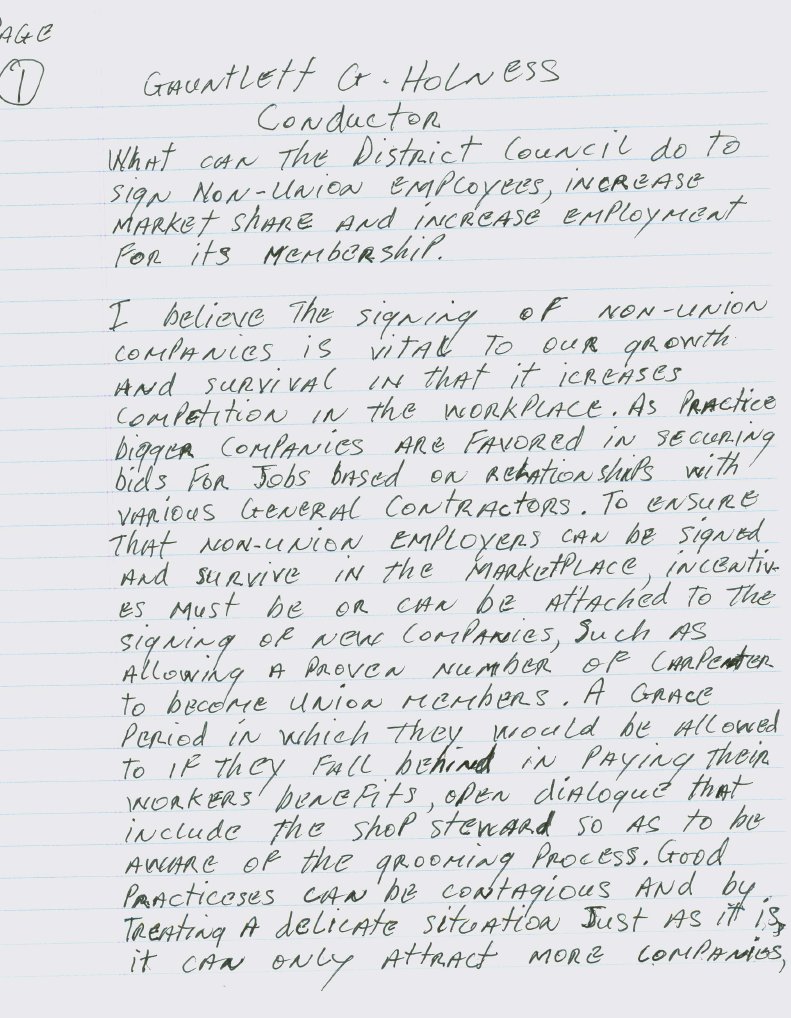 PAGE
1
GAUNTLETT G. HOLNESS
CONDUCTOR
WHAT CAN THE DISTRICT COUNCIL do TO
SIGN NON-UNION EMPLOYEES, INCREASE
MARKET SHARE AND INCREASE EMPLOYMENT
FOR ITS MEMBERSHIP.
I believe THE SIGNING OF NON-UNION
COMPANIES IS VITAL TO OUR GROWTH
AND SURVIVAL IN THAT IT ICREASES
COMPETITION IN THE WORKPLACE. AS PRACTICE
BIGGER COMPANIES ARE FAVORED IN SECURING
bids FOR JOBS BASED ON RELATIONSHIPS WITH
VARIOUS GENERAL CONTRACTORS. TO ENSURE
THAT NON-UNION EMPLOYERS CAN BE SIGNED
AND SURVIVE IN THE MARKETPLACE, INCENTIV-
ES MUST BE OR CAN BE ATTACHED TO THE
SIGNING OF NEW COMPANIES, SUCH AS
ALLOWING A PROVEN NUMBER OF CARPENTER
TO BECOME UNION MEMBERS. A GRACE
PERIOD IN WHICH THEY WOULD BE ALLOWED
TO IF THEY FALL BEHIND IN PAYING THEIR
WORKERS BENEFITS, OPEN DIALOGUE THAT
INCLUDE THE SHOP STEWARD SO AS TO BE
AWARE OF THE GROOMING PROCESS. GOOD
PRACTICESES CAN BE CONTAGIOUS AND BY
TREATING A DELICATE SITUATION JUST AS IT IS,
IT CAN ONLY ATTRACT MORE COMPANIES,